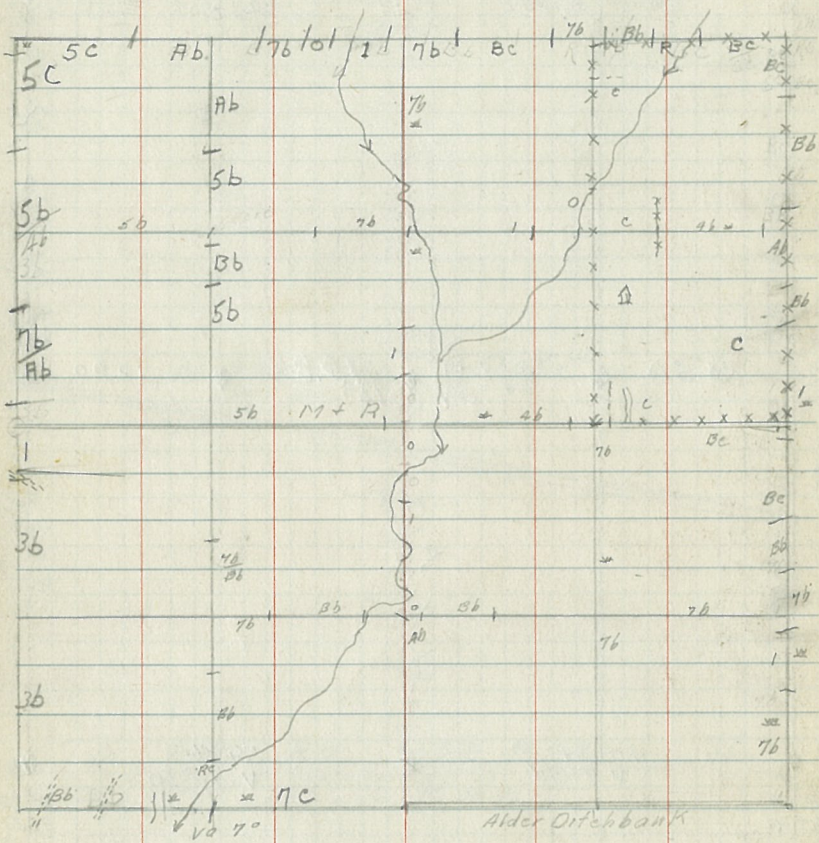 5c Ab 7b 0 1 7b Bc 7b Bb R Bc
5C Bc
Ab 7b c
Bb
5b
5b 5b 7b 1 0 c 4b
Ab Ab
Bb
5b Bb
7b c
Ab 1
1
5b M+R 4b c
Bc
1 0 7b
Bc
1
3b 7b Bb
Bb
7b
7b Bb 0 Bb 7b
Ab 7b 1
3b
Bb
7b
Rc
Bb 7C
Va 7°
Alder Ditchbank